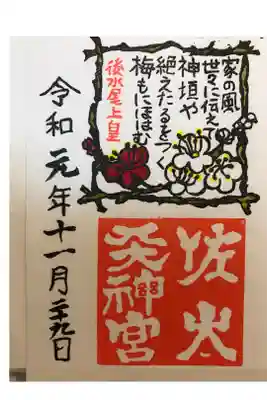 家の風
世々に伝え
神垣や
絶えたるをつく
梅もにほはむ
後水尾上皇
佐太
天神宮
令和元年十一月二十九日